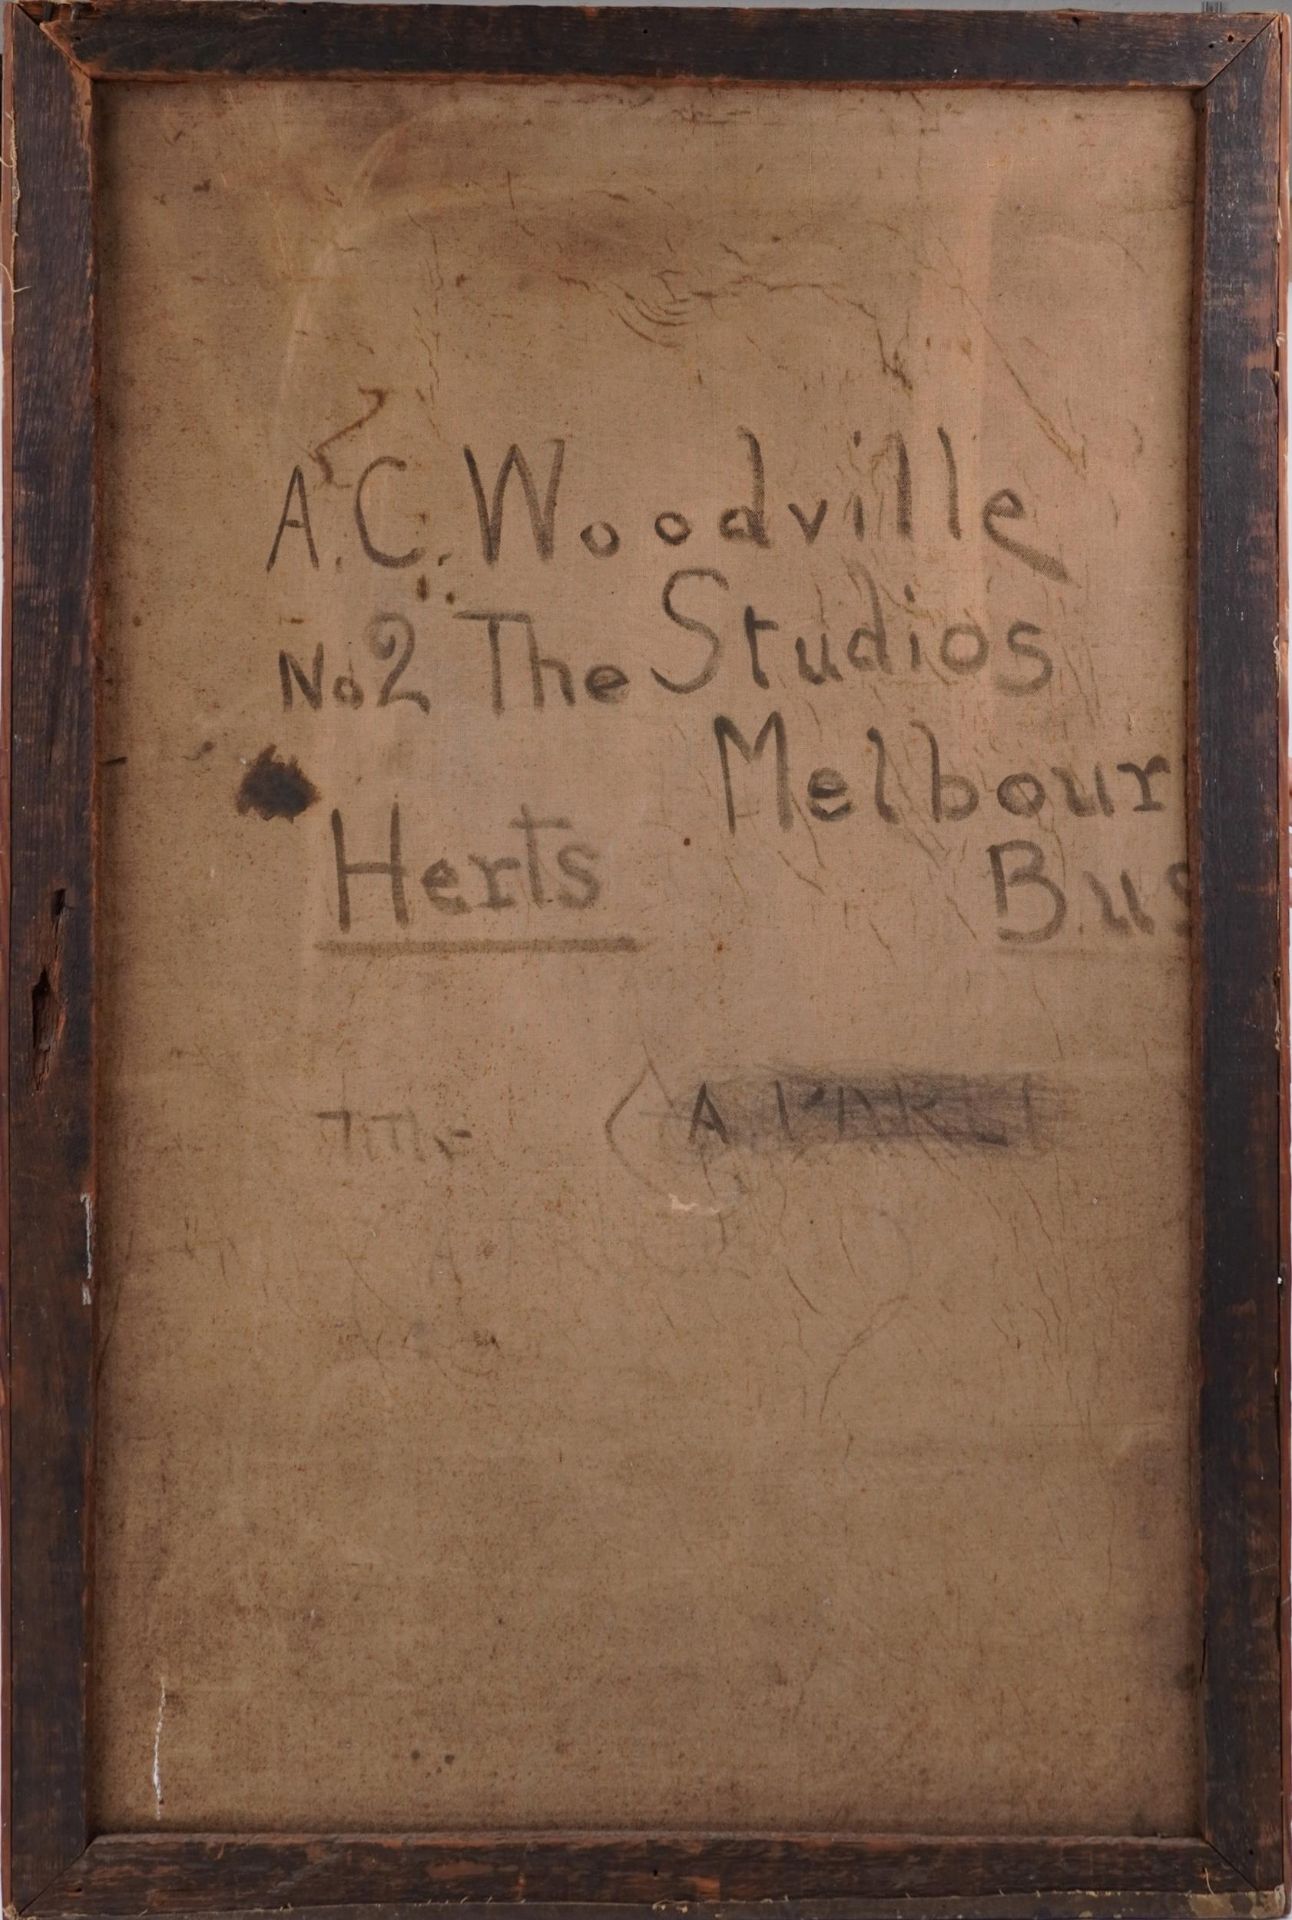 A.C. Woodville
No 2 The Studios
Melbour
Herts Bus
Title (A